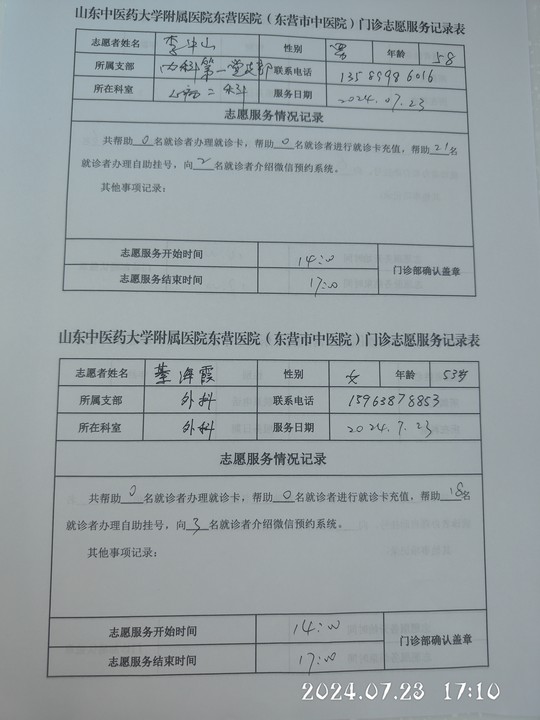 山东中医药大学附属医院东营医院（东营市中医院）门诊志愿服务记录表
志愿者姓名 李半山 性别 男 年龄 58
所属支部 内科第一党支部 联系电话 13589986016
所在科室 二科 服务日期 2024.07.23
志愿服务情况记录
共帮助0名就诊者办理就诊卡，帮助0名就诊者进行就诊卡充值，帮助21名
就诊者办理自助挂号，向2名就诊者介绍微信预约系统。
其他事项记录：
志愿服务开始时间 14:00
门诊部确认盖章
志愿服务结束时间 17:00
山东中医药大学附属医院东营医院（东营市中医院）门诊志愿服务记录表
志愿者姓名 海霞 性别 女 年龄 53岁
所属支部 外科 联系电话 15963878853
所在科室 外科 服务日期 2024.7.23
志愿服务情况记录
共帮助0名就诊者办理就诊卡，帮助0名就诊者进行就诊卡充值，帮助18名
就诊者办理自助挂号，向3名就诊者介绍微信预约系统。
其他事项记录：
志愿服务开始时间 14:00
门诊部确认盖章
志愿服务结束时间 17:00
2024.07.23 17:10